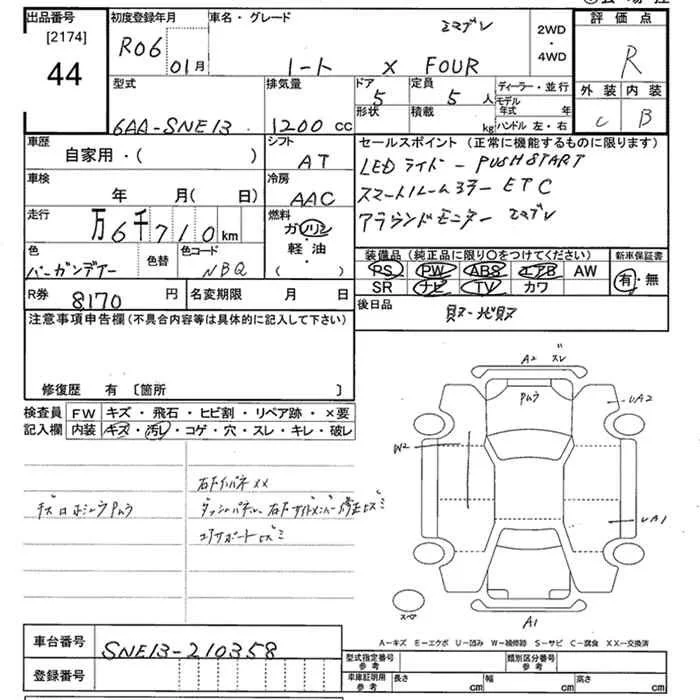 出品番号
[2174]
44
初度登録年月
R06 01月
車名・グレード
ノート X FOUR
2WD
・
4WD
評価点
R
外装 内装
C B
型式
6AA-SNE13
排気量
1200cc
ドア 5
形状
定員 5人
積載 kg
ディーラー・並行
モデル年式 年
ハンドル 左・右
車歴
自家用・( )
シフト
AT
車検
年 月( 日)
冷房
AAC
走行
万6千710km
燃料
ガソリン
軽・油
( )
色
バーガンデー
色替
色コード
NBQ
R券 8170円
名変期限 月 日
セールスポイント (正常に機能するものに限ります)
LEDライト PUSH START
スマートルームミラー ETC
アラウンドモニター
装備品(純正品に限り〇をつけてください)
新車保証書
PS PW ABS エアB AW
SR ナビ TV カワ
有・無
後日品
注意事項申告欄(不具合内容等は具体的に記入して下さい)
修復歴 有 〔箇所 〕
検査員記入欄
FW キズ・飛石・ヒビ割・リペア跡・×要
内装 キズ・汚レ・コゲ・穴・スレ・キレ・破レ
右ドイパネXX
コアサポートヒズミ
A2
UA2
W2
UA1
A1
スペア
A-キズ E-エクボ U-凹み W-補修跡 S-サビ C-腐食 XX-交換済
車台番号
SNE13-210358
登録番号
型式指定番号
参考
類別区分番号
参考
車庫証明用
参考
長さ cm
幅 cm
高さ cm